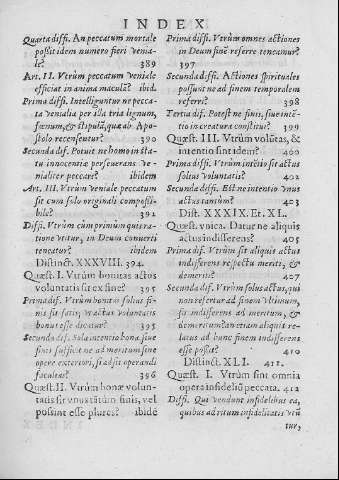 INDEX
Quarta diffi. An peccatum mortale
possit idem numero fieri venia-
le? 389
Art. II. Vtrùm peccatum veniale
efficiat in anima macula? ibid.
Prima diffi. Intelliguntur ne pecca-
ta venialia per illa tria lignum,
fœnum, & stipulā, quæ ab Apo-
stolo recensetur? 390
Secunda dif. Potuit ne homo in sta-
tu innocentiæ perseuerans ve-
nialiter peccare? ibidem
Art. III. Vtrùm veniale peccatum
sit cum solo originali compossi-
bile? 392
Diffi. Vtrùm cùm primùm quis ra-
tione vtitur, in Deum conuerti
teneatur? ibidem
Distinct. XXXVIII. 394.
Quæst. I. Vtrùm bonitas actus
voluntatis sit ex fine? 395
Prima diffi. Vtrùm bonitas solius fi-
nis sit satis, vt actus voluntatis
bonus esse dicatur? 395
Secunda diffi. Sola intentio bona siue
finis sufficit ne ad meritum sine
opere exteriori, si adsit operandi
facultas? 396
Quæst. II. Vtrùm bonæ volun-
tatis sit vnus tātùm finis, vel
possint esse plures? ibidē
Prima diffi. Vtrùm omnes actiones
in Deum finē referre teneamur?
397
Secunda diffi. Actiones spirituales
possunt ne ad finem temporalem
referri? 398
Tertia dif. Potest ne finis, siue inté-
tio in creatura constitui? 399
Quæst. III. Vtrùm volūtas, &
intentio sint idem? 400
Prima diffi. Vtrùm intētio sit actus
solius voluntatis? 402
Secunda diffi. Est ne intentio vnus
actus tantùm? 403
Dist. XXXIX. Et. XL.
Quæst. vnica. Datur ne aliquis
actus indifferens? 405
Prima diffi. Vtrùm sit aliquis actus
indifferens respectu meriti, &
demeriti? 407
Secunda diffi. Vtrùm solus actus, qui
non refertur ad finem vltimum,
sit indifferens ad meritum, &
demeritum? an etiam aliquis re-
latus ad hunc finem indifferens
esse possit? 410
Distinct. XLI. 411.
Quæst. I. Vtrùm sint omnia
opera infideliū peccata. 412
Diffi. Qui vendunt infidelibus ea,
quibus ad ritum infidelitatis vtū
tur,